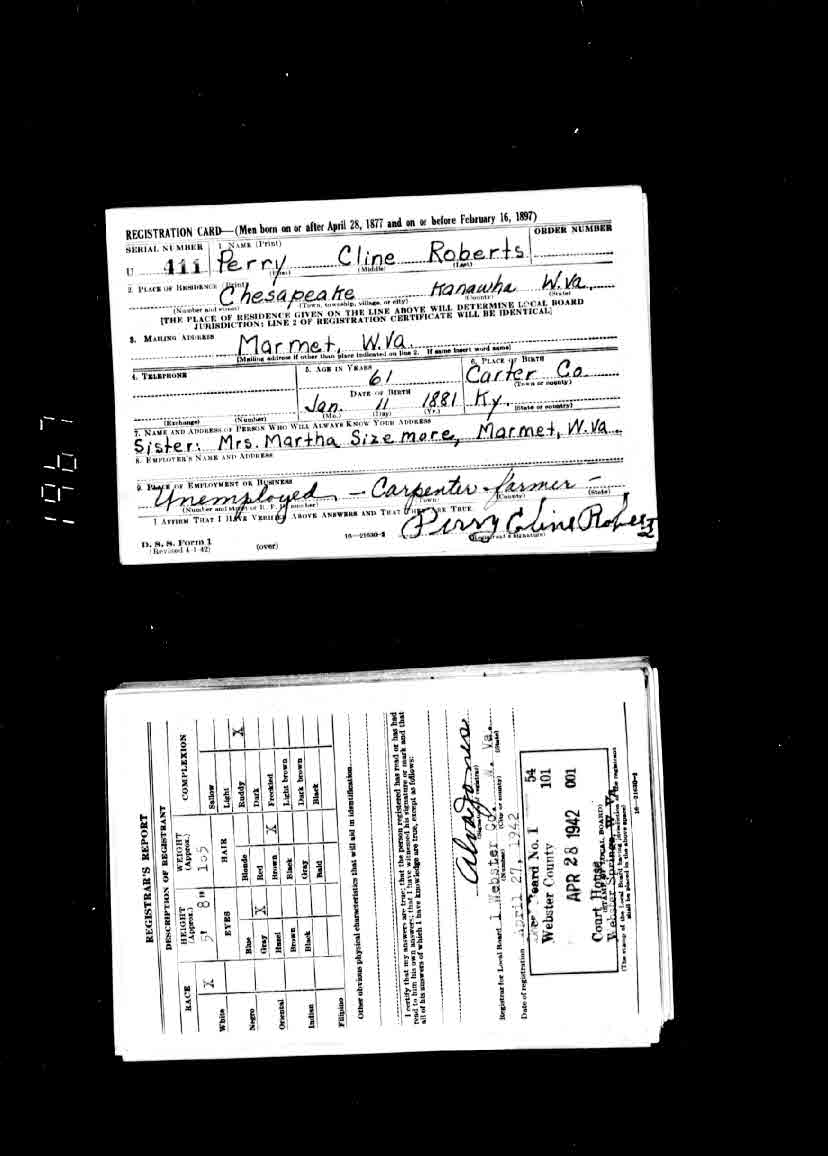 REGISTRATION CARD—(Men born on or after April 28, 1877 and on or before February 16, 1897)
SERIAL NUMBER 1. NAME (Print) ORDER NUMBER
U 411 Perry Cline Roberts
(First) (Middle) (Last)
2. PLACE OF RESIDENCE (Print)
Chesapeake Kanawha W.Va.
(Number and street) (Town, township, village, or city) (County) (State)
[THE PLACE OF RESIDENCE GIVEN ON THE LINE ABOVE WILL DETERMINE LOCAL BOARD
JURISDICTION; LINE 2 OF REGISTRATION CERTIFICATE WILL BE IDENTICAL]
3. MAILING ADDRESS
Marmet, W.Va.
[Mailing address if other than place indicated on line 2. If same insert word same]
4. TELEPHONE 5. AGE IN YEARS 6. PLACE OF BIRTH
61 Carter Co.
(Town or county)
DATE OF BIRTH
Jan. 11 1881 Ky.
(Exchange) (Number) (Mo.) (Day) (Yr.) (State or country)
7. NAME AND ADDRESS OF PERSON WHO WILL ALWAYS KNOW YOUR ADDRESS
Sister: Mrs. Martha Sizemore, Marmet, W.Va.
8. EMPLOYER'S NAME AND ADDRESS
9. PLACE OF EMPLOYMENT OR BUSINESS
Unemployed — Carpenter - farmer —
(Number and street or R. F. D. number) (Town) (County) (State)
I AFFIRM THAT I HAVE VERIFIED ABOVE ANSWERS AND THAT THEY ARE TRUE
Perry Cline Roberts
D. S. S. Form 1 16—21630-2 (Registrant's signature)
(Revised 4-1-42) (over)
1967
REGISTRAR'S REPORT
DESCRIPTION OF REGISTRANT
RACE HEIGHT (Approx.) WEIGHT (Approx.) COMPLEXION
White X 5' 8" 165 Sallow
EYES HAIR Light
Negro Blue Blonde Ruddy X
Gray X Red Dark
Oriental Hazel Brown X Freckled
Brown Black Light brown
Indian Black Gray Dark brown
Bald Black
Filipino
Other obvious physical characteristics that will aid in identification
I certify that my answers are true; that the person registered has read or has had
read to him his own answers; that I have witnessed his signature or mark and that
all of his answers of which I have knowledge are true, except as follows:
Alva Jones
(Signature of registrar)
Registrar for Local Board 1 Webster Co. W. Va.
(Number) (City or county) (State)
Date of registration April 27, 1942
Board No. 1 54
Webster County 101
APR 28 1942 001
Court House
(STAMP OF LOCAL BOARD)
Webster Springs, W. Va.
(The stamp of the Local Board having jurisdiction of the registrant
shall be placed in the above space)
16—21630-2